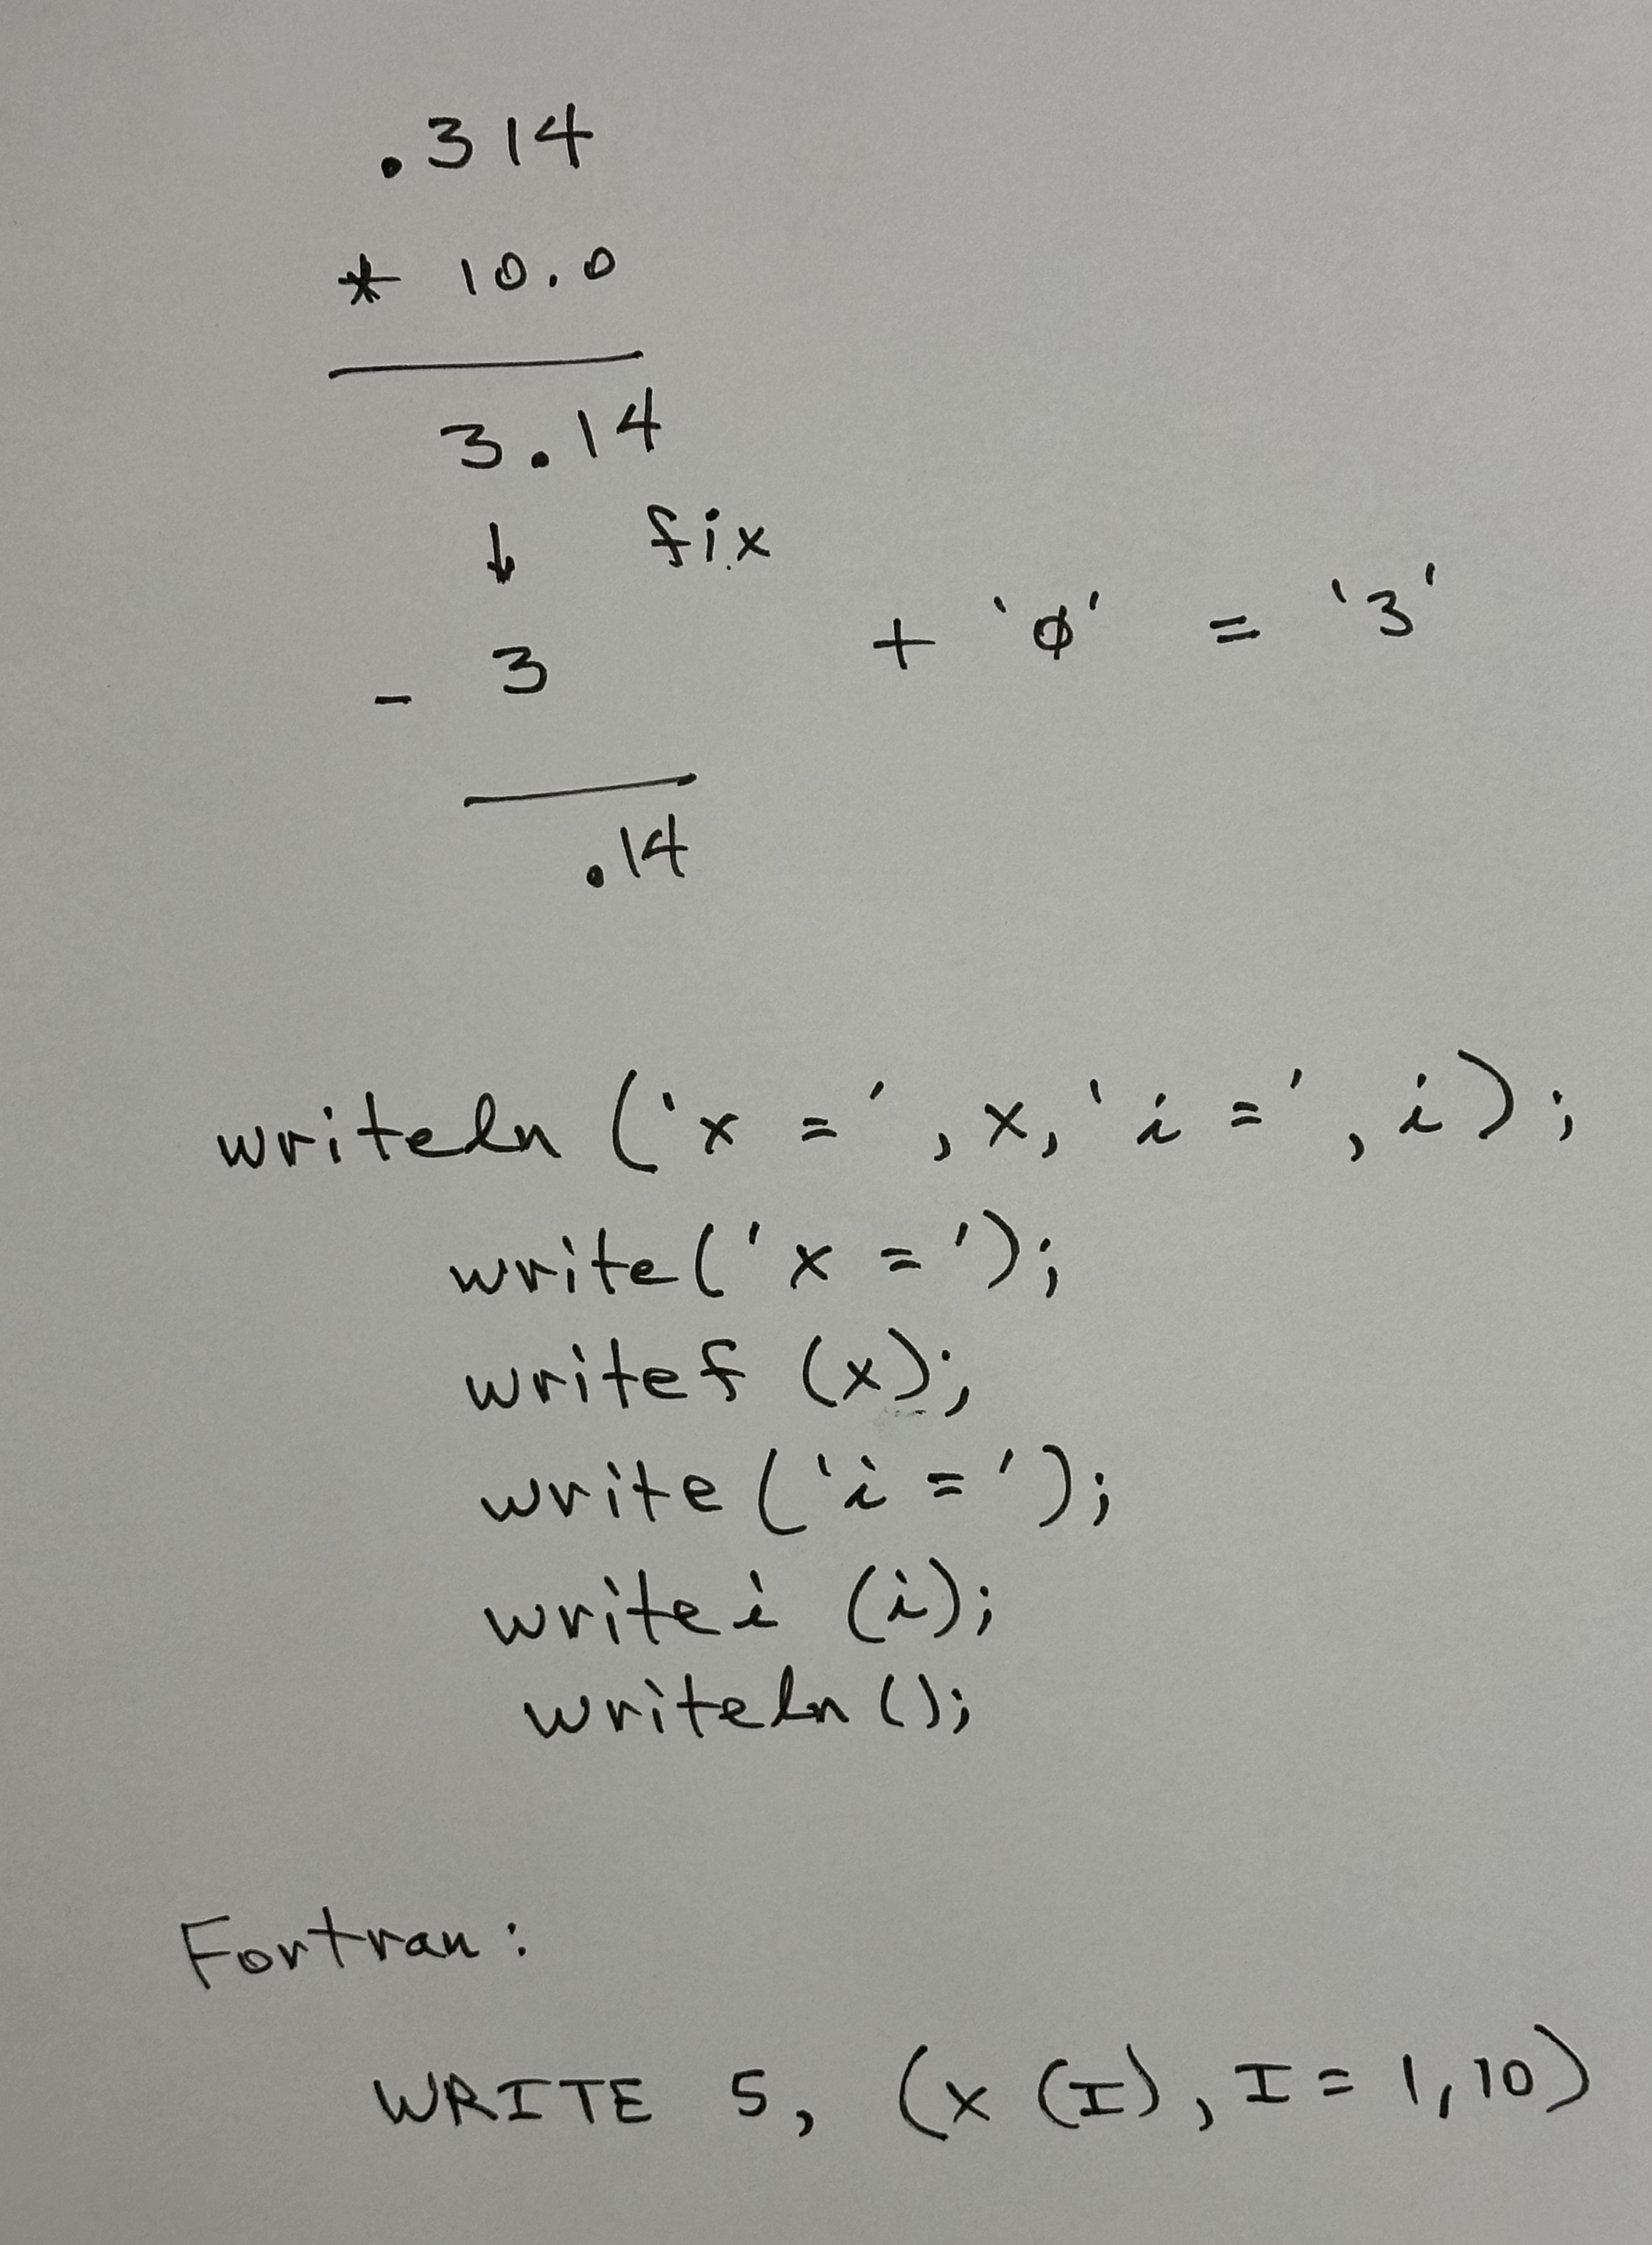 .314
* 10.0
3.14
↓ fix
- 3 + '0' = '3'
.14
writeln ('x =', x, 'i =', i);
write('x =');
writef (x);
write ('i =');
writei (i);
writeln ();
Fortran:
WRITE 5, (x (I), I = 1,10)